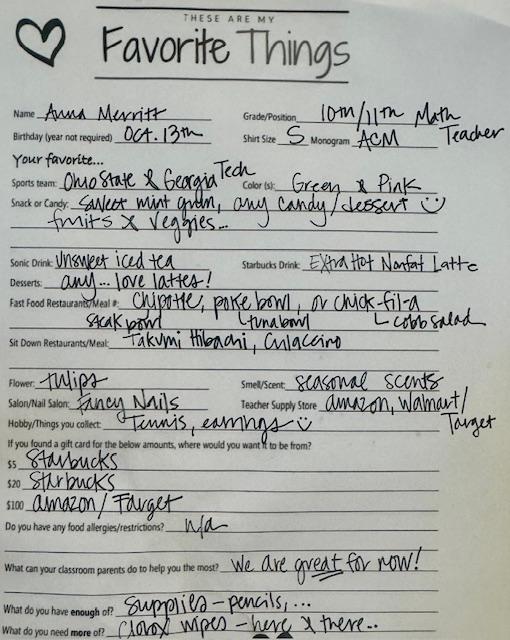 THESE ARE MY
Favorite Things
Name Anna Merritt Grade/Position 10th/11th Math Teacher
Birthday (year not required) Oct. 13th Shirt Size S Monogram ACM
Your favorite...
Sports team: Ohio State & Georgia Tech Color (s): Green & Pink
Snack or Candy: sweet mint gum, any candy/dessert
fruits & veggies...
Sonic Drink: Unsweet iced tea Starbucks Drink: Extra Hot Nonfat Latte
Desserts: any... love lattes!
Fast Food Restaurants/Meal #: Chipotle, poke bowl, or chick-fil-a
steak bowl tuna bowl cobb salad
Sit Down Restaurants/Meal: Takumi Hibachi, Culaccino
Flower: tulips Smell/Scent: seasonal scents
Salon/Nail Salon: Fancy Nails Teacher Supply Store amazon, Walmart/Target
Hobby/Things you collect: Tennis, earrings
If you found a gift card for the below amounts, where would you want it to be from?
$5 Starbucks
$20 Starbucks
$100 amazon/Target
Do you have any food allergies/restrictions? n/a
What can your classroom parents do to help you the most? we are great for now!
What do you have enough of? supplies - pencils,...
What do you need more of? clorox wipes - here & there..